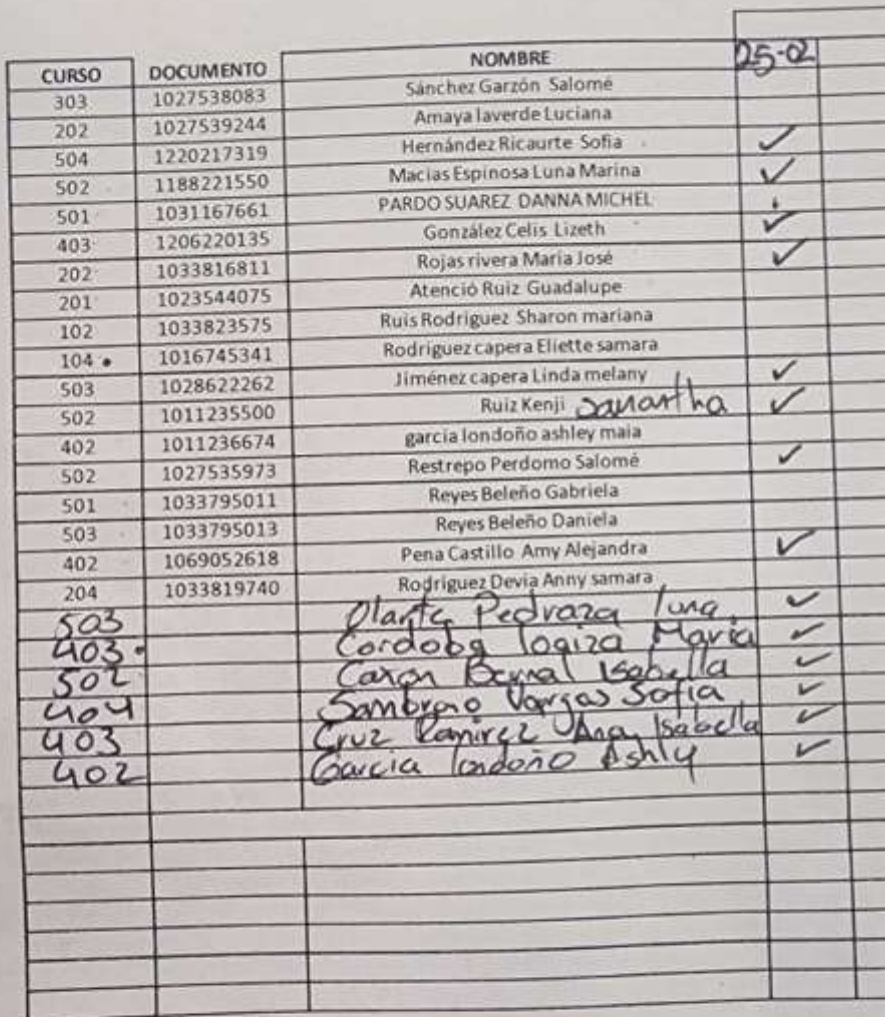 25-02
CURSO DOCUMENTO NOMBRE
303 1027538083 Sánchez Garzón Salomé
202 1027539244 Amaya laverde Luciana
504 1220217319 Hernández Ricaurte Sofia ✓
502 1188221550 Macias Espinosa Luna Marina ✓
501 1031167661 PARDO SUAREZ DANNA MICHEL
403 1206220135 González Celis Lizeth ✓
202 1033816811 Rojas rivera Maria José ✓
201 1023544075 Atenció Ruiz Guadalupe
102 1033823575 Ruis Rodriguez Sharon mariana
104 1016745341 Rodriguez capera Eliette samara
503 1028622262 Jiménez capera Linda melany ✓
502 1011235500 Ruiz Kenji Samantha ✓
402 1011236674 garcia londoño ashley maia
502 1027535973 Restrepo Perdomo Salomé ✓
501 1033795011 Reyes Beleño Gabriela
503 1033795013 Reyes Beleño Daniela
402 1069052618 Pena Castillo Amy Alejandra ✓
204 1033819740 Rodriguez Devia Anny samara
503 Olarte Pedraza luna ✓
403 Cordoba loaiza Maria ✓
502 Bernal Isabella ✓
404 Sambrano Vargas Sofia ✓
403 Cruz Ramirez Ana Isabella ✓
402 Garcia londoño Ashly ✓